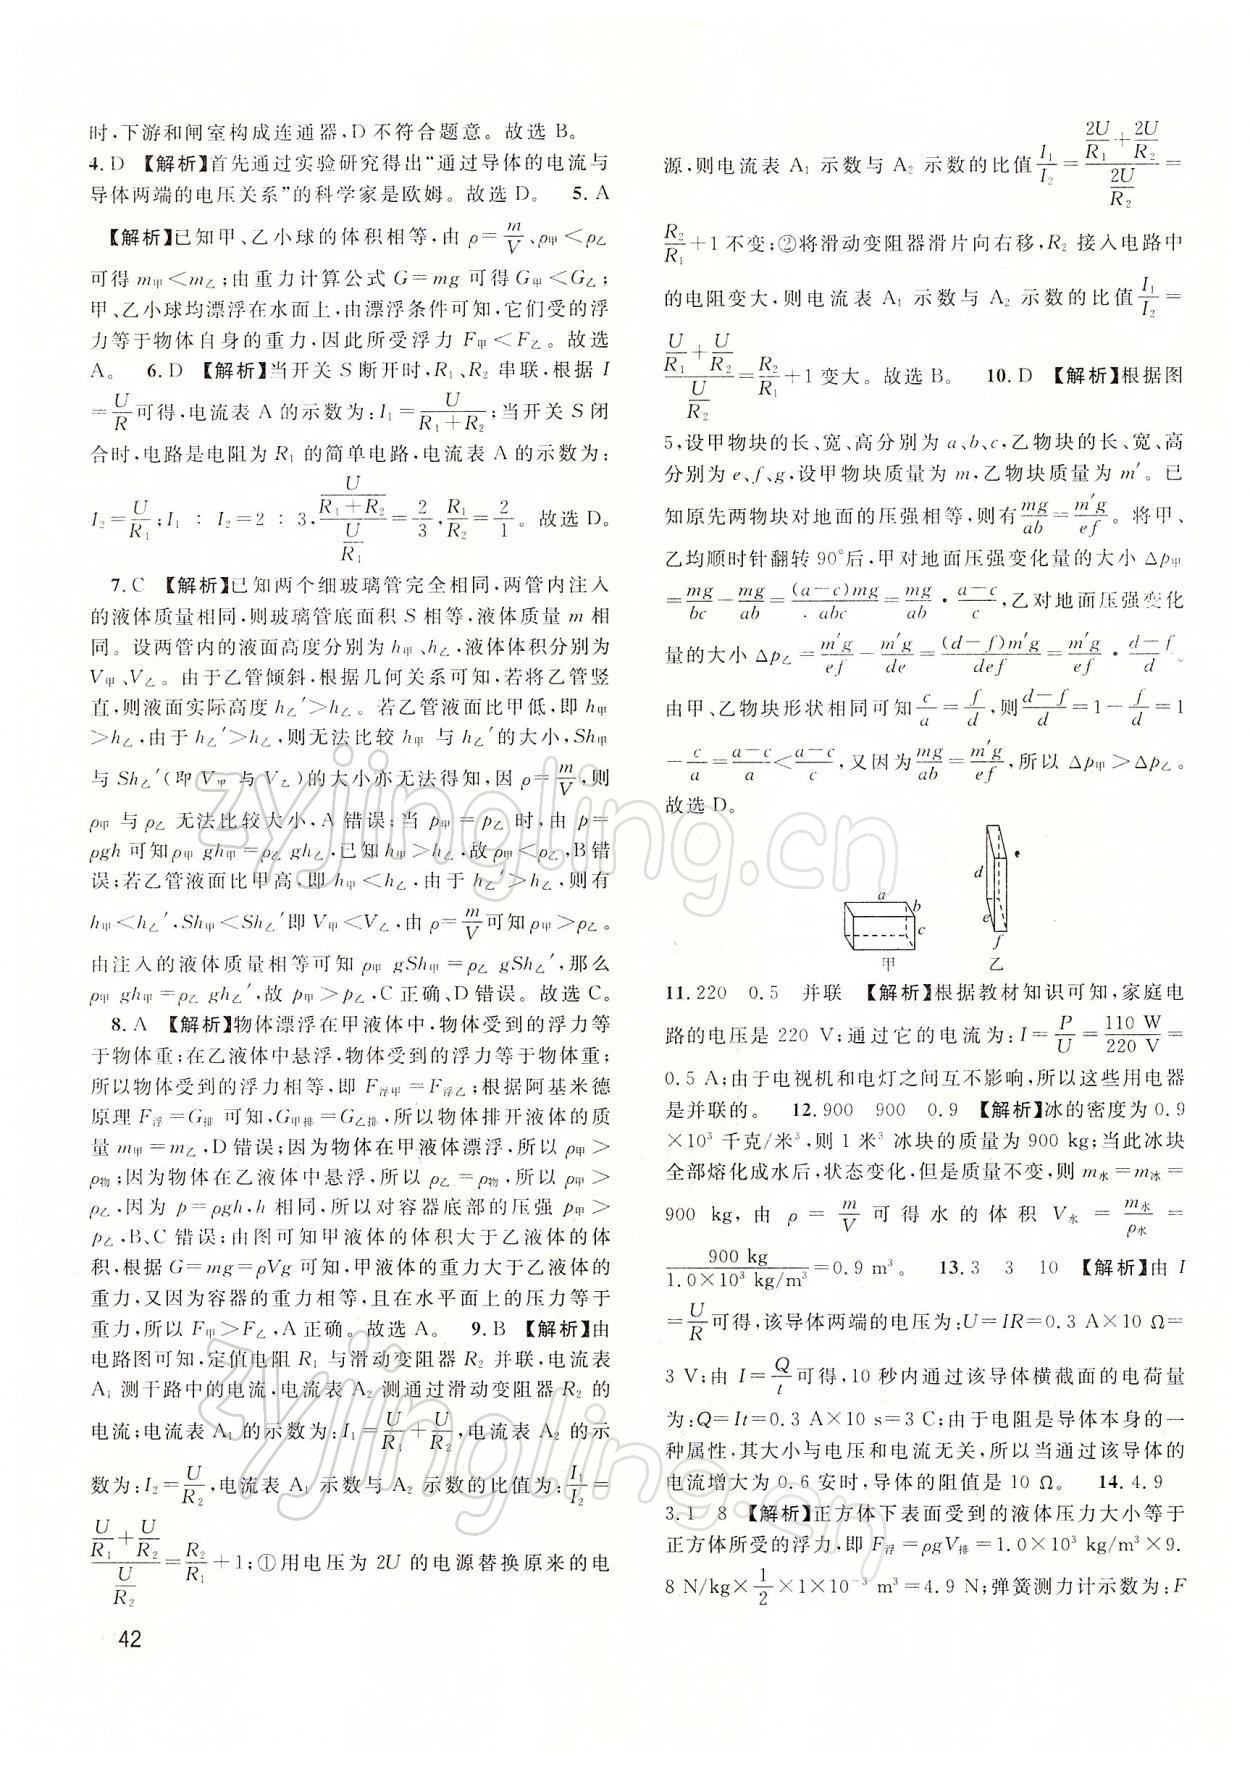 时,下游和闸室构成连通器,D 不符合题意。故选 B。
4. D 【解析】首先通过实验研究得出“通过导体的电流与
导体两端的电压关系”的科学家是欧姆。故选 D。 5. A
【解析】已知甲、乙小球的体积相等,由 ρ=m/V、ρ甲<ρ乙
可得 m甲<m乙;由重力计算公式 G=mg 可得 G甲<G乙;
甲、乙小球均漂浮在水面上,由漂浮条件可知,它们受的浮
力等于物体自身的重力,因此所受浮力 F甲<F乙。故选
A。 6. D 【解析】当开关 S 断开时,R₁、R₂ 串联,根据 I
=U/R可得,电流表 A 的示数为:I₁=U/(R₁+R₂);当开关 S 闭
合时,电路是电阻为 R₁ 的简单电路,电流表 A 的示数为:
I₂=U/R₁;I₁ : I₂=2 : 3,(U/(R₁+R₂))/(U/R₁)=2/3,R₁/R₂=2/1。故选 D。
7. C 【解析】已知两个细玻璃管完全相同,两管内注入
的液体质量相同,则玻璃管底面积 S 相等,液体质量 m 相
同。设两管内的液面高度分别为 h甲、h乙,液体体积分别为
V甲、V乙。由于乙管倾斜,根据几何关系可知,若将乙管竖
直,则液面实际高度 h乙′>h乙。若乙管液面比甲低,即 h甲
>h乙,由于 h乙′>h乙,则无法比较 h甲 与 h乙′的大小,Sh甲
与 Sh乙′(即 V甲 与 V乙)的大小亦无法得知,因 ρ=m/V,则
ρ甲 与 ρ乙 无法比较大小,A 错误;当 p甲=p乙 时,由 p=
ρgh 可知 ρ甲 gh甲=ρ乙 gh乙,已知 h甲>h乙,故 ρ甲<ρ乙,B 错
误;若乙管液面比甲高,即 h甲<h乙,由于 h乙′>h乙,则有
h甲<h乙′,Sh甲<Sh乙′即 V甲<V乙,由 ρ=m/V可知 ρ甲>ρ乙。
由注入的液体质量相等可知 ρ甲 gSh甲=ρ乙 gSh乙′,那么
ρ甲 gh甲=ρ乙 gh乙′,故 p甲>p乙,C 正确、D 错误。故选 C。
8. A 【解析】物体漂浮在甲液体中,物体受到的浮力等
于物体重;在乙液体中悬浮,物体受到的浮力等于物体重;
所以物体受到的浮力相等,即 F浮甲=F浮乙;根据阿基米德
原理 F浮=G排 可知,G甲排=G乙排,所以物体排开液体的质
量 m甲=m乙,D 错误;因为物体在甲液体漂浮,所以 ρ甲>
ρ物;因为物体在乙液体中悬浮,所以 ρ乙=ρ物,所以 ρ甲>
ρ乙,因为 p=ρgh,h 相同,所以对容器底部的压强 p甲>
p乙,B、C 错误;由图可知甲液体的体积大于乙液体的体
积,根据 G=mg=ρVg 可知,甲液体的重力大于乙液体的
重力,又因为容器的重力相等,且在水平面上的压力等于
重力,所以 F甲>F乙,A 正确。故选 A。 9. B 【解析】由
电路图可知,定值电阻 R₁ 与滑动变阻器 R₂ 并联,电流表
A₁ 测干路中的电流,电流表 A₂ 测通过滑动变阻器 R₂ 的
电流;电流表 A₁ 的示数为:I₁=U/R₁+U/R₂,电流表 A₂ 的示
数为:I₂=U/R₂,电流表 A₁ 示数与 A₂ 示数的比值为:I₁/I₂=
(U/R₁+U/R₂)/(U/R₂)=R₂/R₁+1;①用电压为 2U 的电源替换原来的电
42
源,则电流表 A₁ 示数与 A₂ 示数的比值I₁/I₂=(2U/R₁+2U/R₂)/(2U/R₂)=
R₂/R₁+1 不变;②将滑动变阻器滑片向右移,R₂ 接入电路中
的电阻变大,则电流表 A₁ 示数与 A₂ 示数的比值I₁/I₂=
(U/R₁+U/R₂)/(U/R₂)=R₂/R₁+1 变大。故选 B。 10. D 【解析】根据图
5,设甲物块的长、宽、高分别为 a、b、c,乙物块的长、宽、高
分别为 e、f、g,设甲物块质量为 m,乙物块质量为 m′。已
知原先两物块对地面的压强相等,则有mg/ab=m′g/ef。将甲、
乙均顺时针翻转 90°后,甲对地面压强变化量的大小 Δp甲
=mg/bc−mg/ab=(a−c)mg/abc=mg/ab·(a−c)/c,乙对地面压强变化
量的大小 Δp乙=m′g/ef−m′g/de=(d−f)m′g/def=m′g/ef·(d−f)/d。
由甲、乙物块形状相同可知c/a=f/d,则(d−f)/d=1−f/d=1
−c/a=(a−c)/a<(a−c)/c,又因为mg/ab=m′g/ef,所以 Δp甲>Δp乙。
故选 D。
a
b
c
甲
d
e
f
乙
11. 220 0.5 并联 【解析】根据教材知识可知,家庭电
路的电压是 220 V;通过它的电流为:I=P/U=110 W/220 V=
0.5 A;由于电视机和电灯之间互不影响,所以这些用电器
是并联的。 12. 900 900 0.9 【解析】冰的密度为 0.9
×10³ 千克/米³,则 1 米³ 冰块的质量为 900 kg;当此冰块
全部熔化成水后,状态变化,但是质量不变,则 m水=m冰=
900 kg,由 ρ=m/V 可得水的体积 V水=m水/ρ水=
900 kg/(1.0×10³ kg/m³)=0.9 m³。 13. 3 3 10 【解析】由 I
=U/R可得,该导体两端的电压为:U=IR=0.3 A×10 Ω=
3 V;由 I=Q/t可得,10 秒内通过该导体横截面的电荷量
为:Q=It=0.3 A×10 s=3 C;由于电阻是导体本身的一
种属性,其大小与电压和电流无关,所以当通过该导体的
电流增大为 0.6 安时,导体的阻值是 10 Ω。 14. 4.9
3.1 8 【解析】正方体下表面受到的液体压力大小等于
正方体所受的浮力,即 F浮=ρgV排=1.0×10³ kg/m³×9.
8 N/kg×1/2×1×10⁻³ m³=4.9 N;弹簧测力计示数为:F
zyjingling.cn
zyjingling.cn